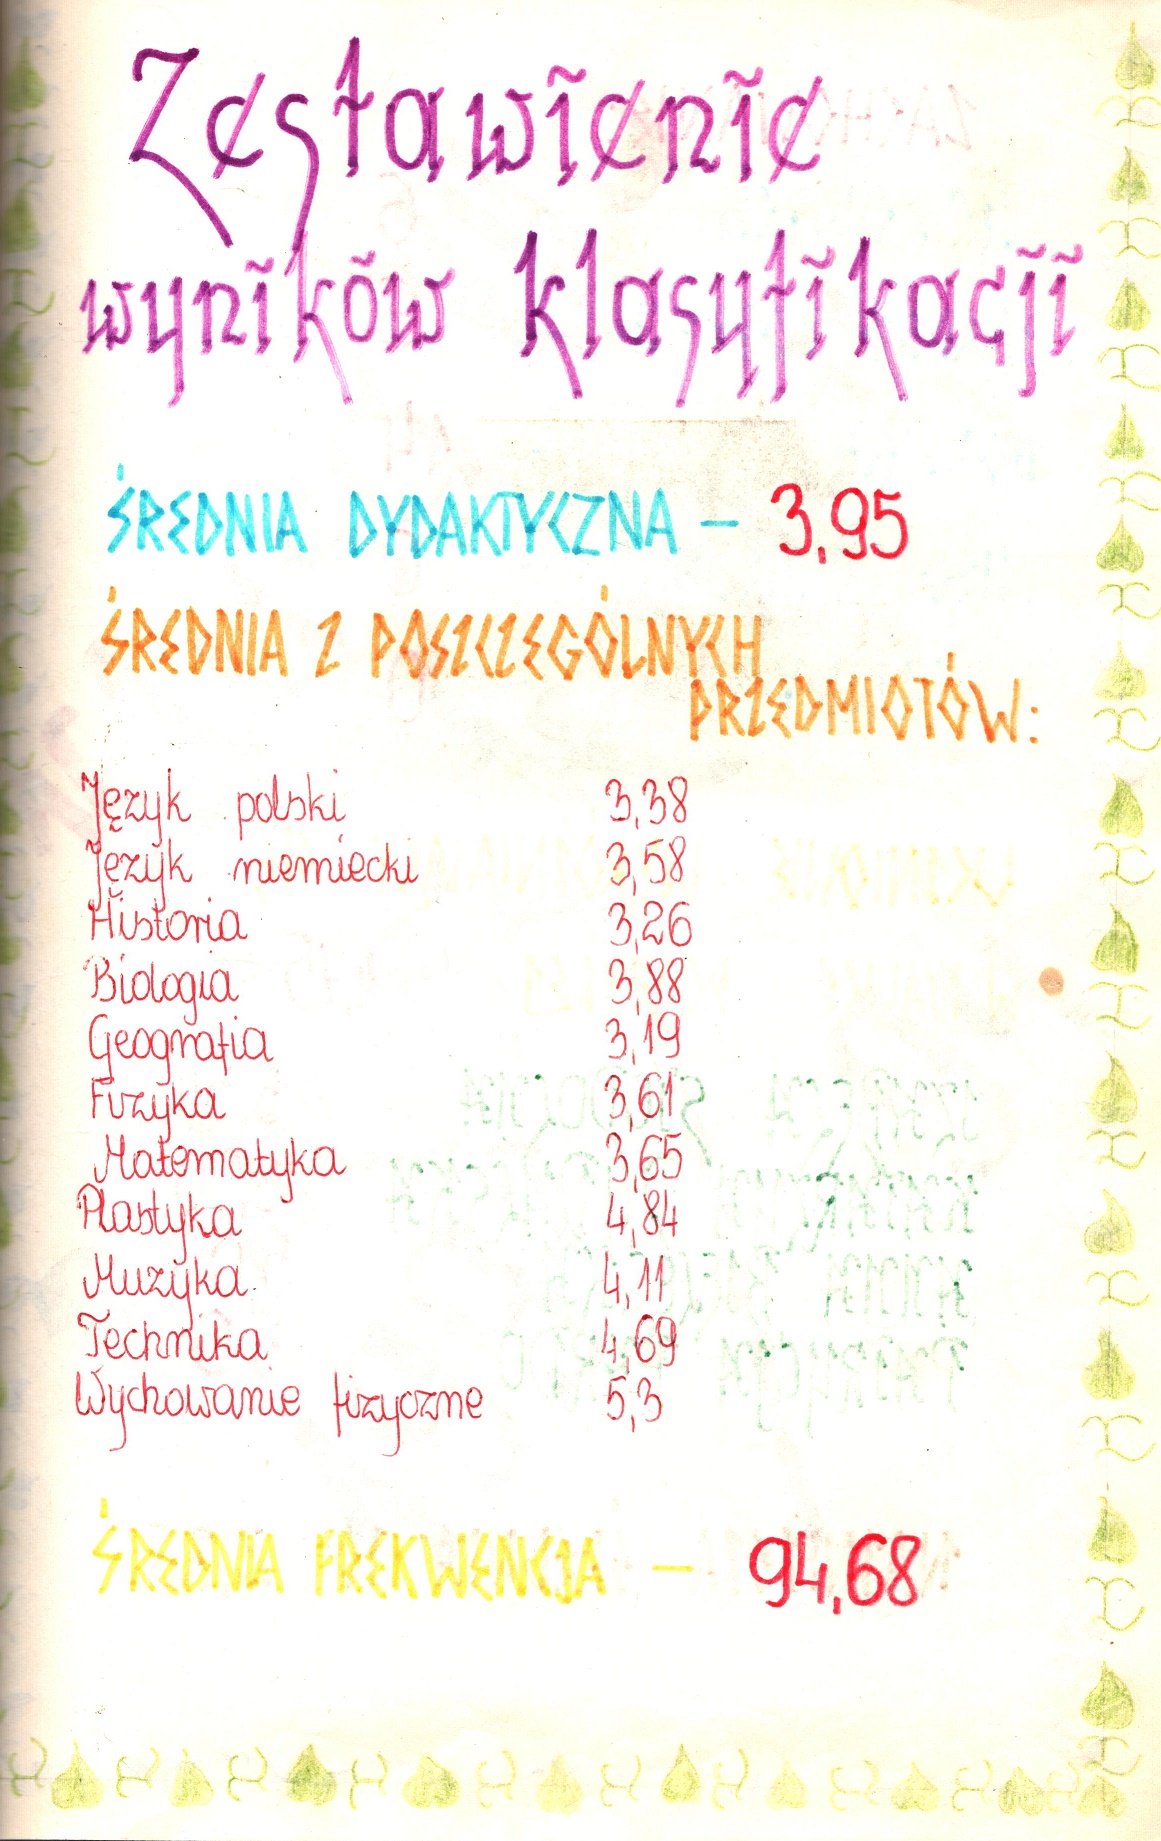 Zestawienie
wyników klasyfikacji
ŚREDNIA DYDAKTYCZNA - 3,95
ŚREDNIA Z POSZCZEGÓLNYCH
PRZEDMIOTÓW:
Język polski 3,38
Język niemiecki 3,58
Historia 3,26
Biologia 3,88
Geografia 3,19
Fizyka 3,61
Matematyka 3,65
Plastyka 4,84
Muzyka 4,11
Technika 4,69
Wychowanie fizyczne 5,3
ŚREDNIA FREKWENCJA - 94,68